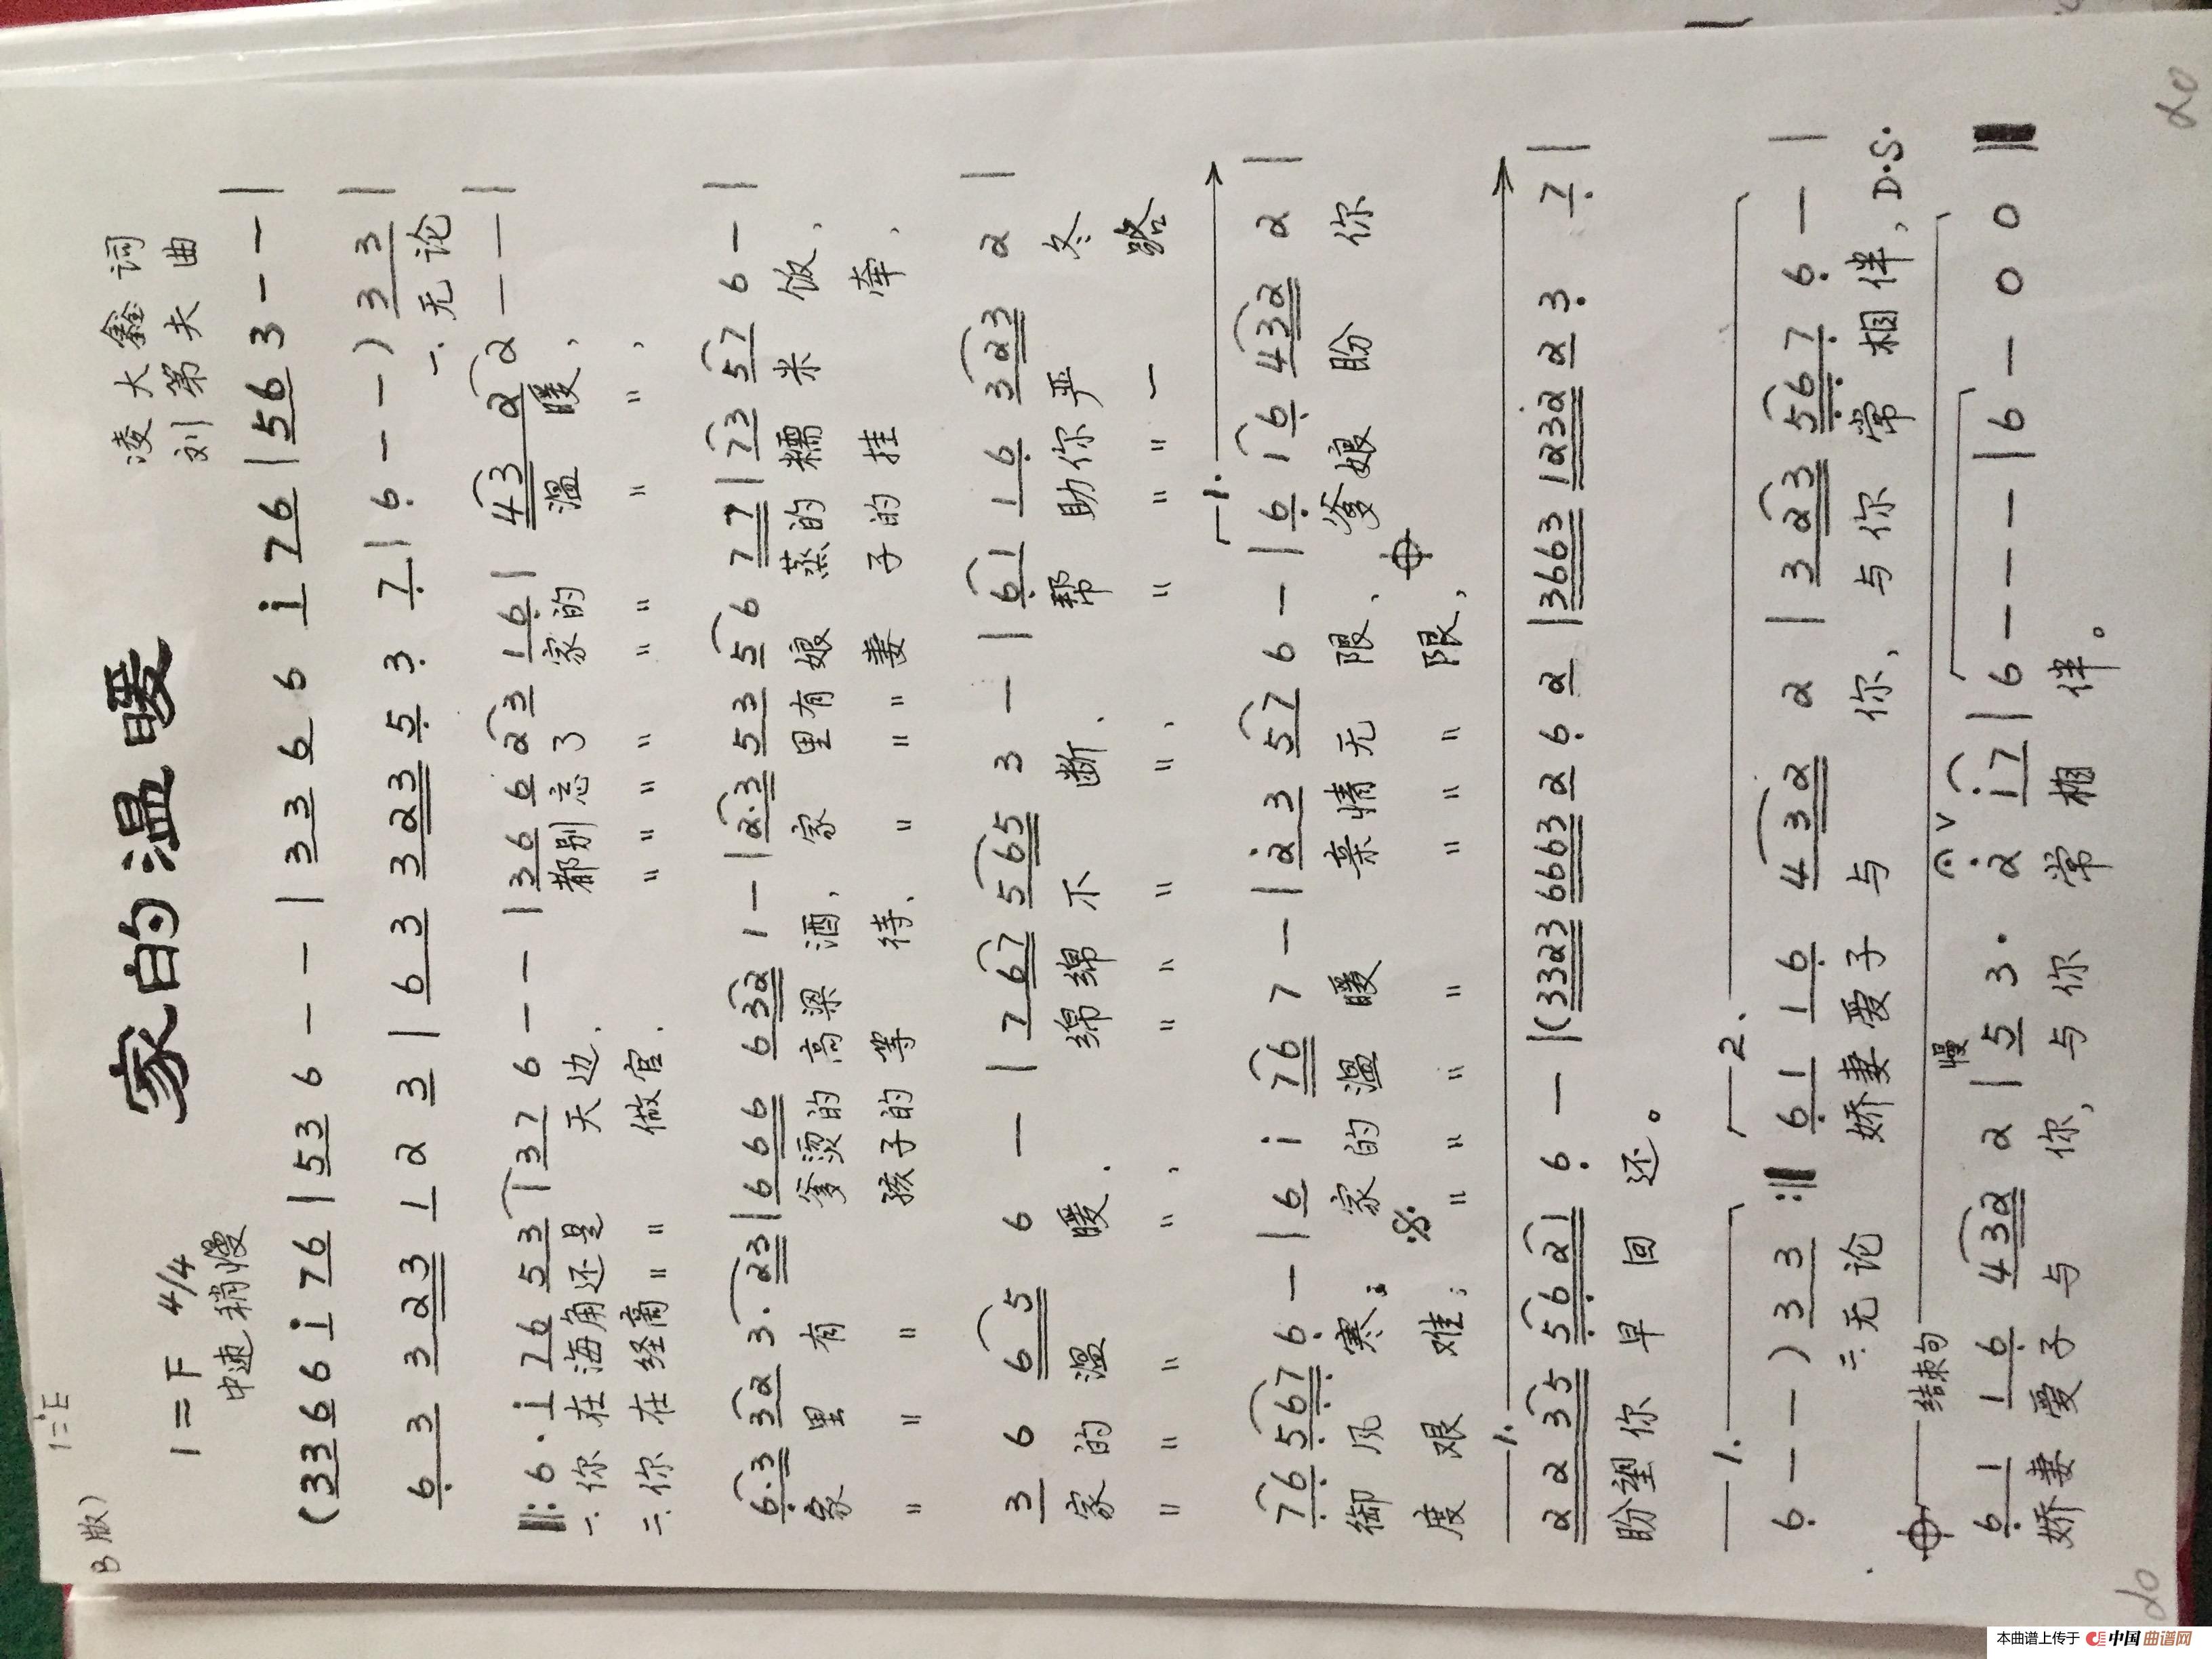 B版) 1=E
家的温暖
1=F 4/4
中速稍慢
凌大鑫 词
刘第夫 曲
(3 3 6 6 i 7 6 | 5 3 6 - - | 3 3 6 6 i 7 6 | 5 6 3 - - |
6 3 3 2 3 1 2 3 | 6 3 3 2 3 5 3 7 | 6 - - ) 3 3 |
一.无论
‖: 6 · i 7 6 5 3 | 3 7 6 - - | 3 6 6 2 3 1 6 | 4 3 2 2 - - |
一.你在海角还是天边. 都别忘了家的温暖,
二.你在经商〃做官. 〃〃〃〃〃〃〃〃,
6·3 3 2 3· 2 3 | 6 6 6 6 3 2 1 - | 2·3 5 3 5 6 7 7 | 7 3 5 7 6 - |
家里有爹烫的高粱酒, 家里有娘蒸的糯米饭,
〃〃〃孩子的等待、〃〃〃妻子的挂牵,
3 6 6 5 6 - | 7 6 7 5 6 5 3 - | 6 1 1 6 3 2 3 2 |
家的温暖. 绵绵不断、帮助你严冬
〃〃〃〃, 〃〃〃〃, 〃〃〃一路
1.
7 6 5 6 7 6 - | 6 i 7 6 7 - | 2 3 5 7 6 - | 6 1 6 4 3 2 2 |
御风寒; 家的温暖亲情无限、爹娘盼你
度艰难; 〃〃〃〃〃〃〃限,
1.
2 2 3 5 5 6 2 1 6 - | (3 3 2 3 6 6 6 3 2 6 2 | 3 6 6 3 1 2 3 2 2 3 7 |
盼望你早回还。
1. 2.
6 - - ) 3 3 :‖ 6 1 1 6 4 3 2 2 | 3 2 3 5 6 7 6 - |
二.无论娇妻爱子与你, 与你常相伴, D.S.
结束句 慢
6 1 1 6 4 3 2 2 | 5 3· 2 i 7 | 6 - - - | 6 - 0 0 ‖
娇妻爱子与你, 与你常相伴。
20
20
本曲谱上传于 中国曲谱网